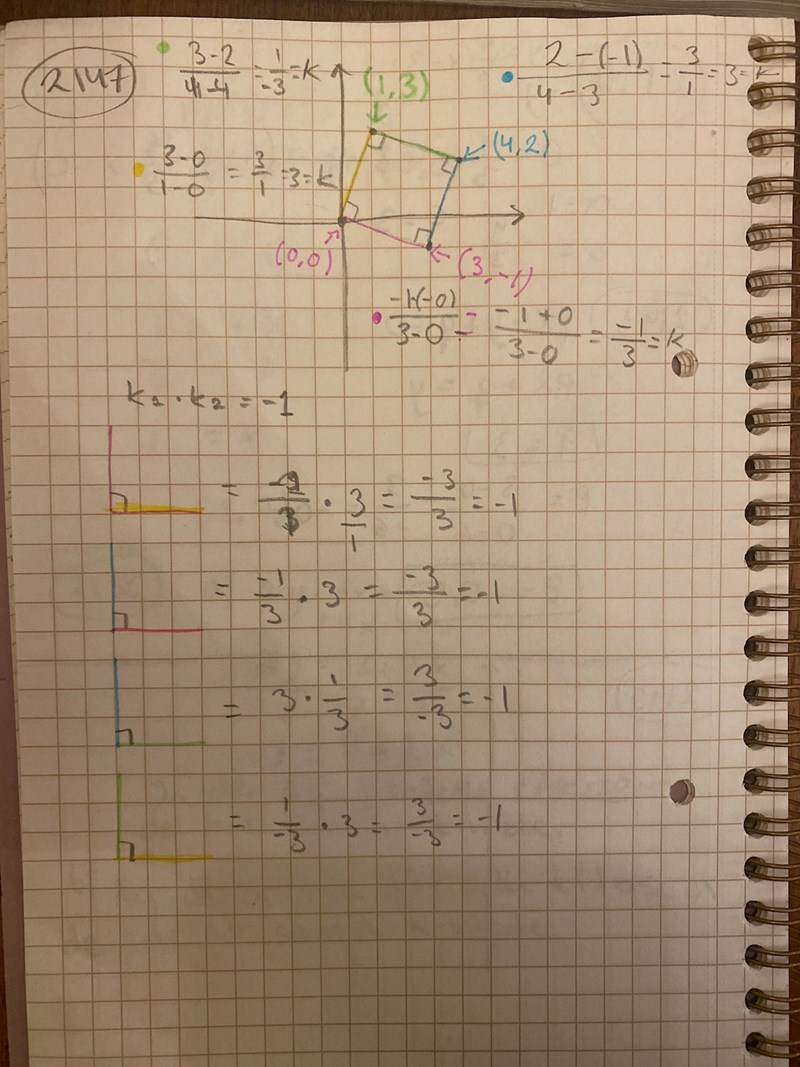 2147
3-2/4-4 = 1/-3 = k
(1,3)
2-(-1)/4-3 = 3/1 = 3 = k
3-0/1-0 = 3/1 = 3 = k
(4,2)
(0,0)
(3,-1)
-1-(-0)/3-0 = -1+0/3-0 = -1/3 = k
k₂ · k₂ = -1
= -1/3 · 3/1 = -3/3 = -1
= -1/3 · 3 = -3/3 = -1
= 3 · 1/3 = 3/-3 = -1
= 1/-3 · 3 = 3/-3 = -1